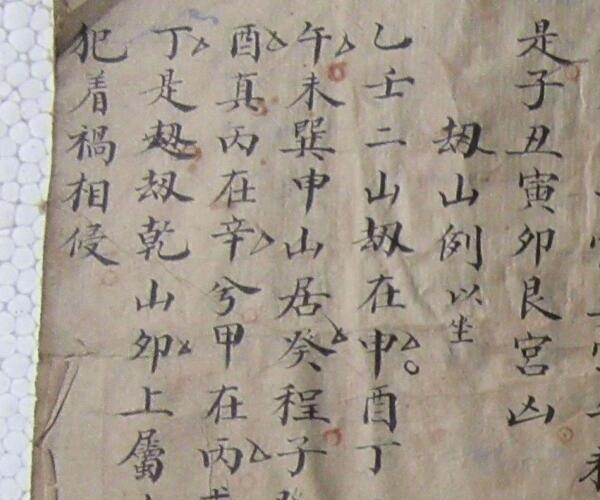 是子丑寅卯艮宮凶
劫山例以坐
乙壬二山劫在申酉丁
午未巽申山居癸程子
酉真丙在辛兮甲在丙
丁是劫劫乾山卯上屬
犯着禍相侵